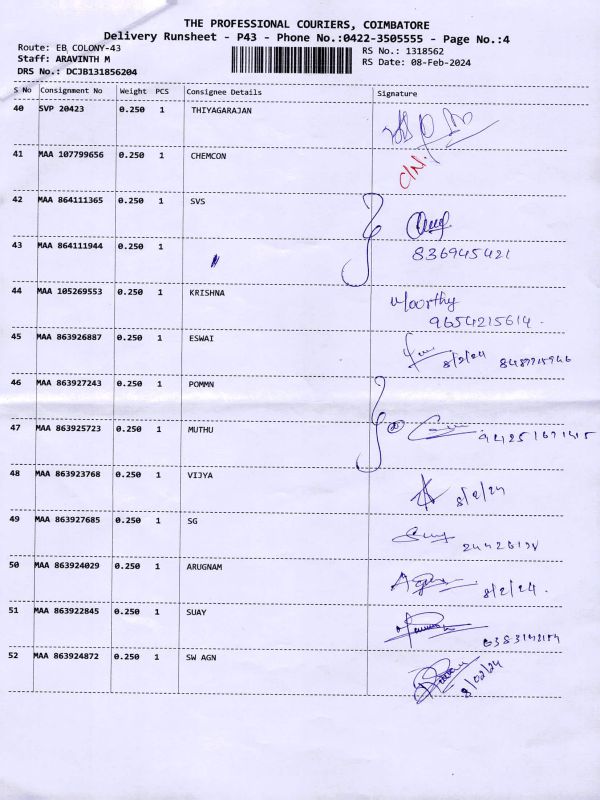 THE PROFESSIONAL COURIERS, COIMBATORE
Delivery Runsheet - P43 - Phone No.:0422-3505555 - Page No.:4
Route: EB COLONY-43
RS No.: 1318562
Staff: ARAVINTH M
RS Date: 08-Feb-2024
DRS No.: DCJB131856204
S No Consignment No Weight PCS Consignee Details Signature
40 SVP 20423 0.250 1 THIYAGARAJAN
41 MAA 107799656 0.250 1 CHEMCON
42 MAA 864111365 0.250 1 SVS
43 MAA 864111944 0.250 1 836945421
44 MAA 105269553 0.250 1 KRISHNA Moorthy
9654215614.
45 MAA 863926887 0.250 1 ESWAI 8/2/24
46 MAA 863927243 0.250 1 POMMN
47 MAA 863925723 0.250 1 MUTHU
48 MAA 863923768 0.250 1 VIJYA 8/2/24
49 MAA 863927685 0.250 1 SG
50 MAA 863924029 0.250 1 ARUGNAM 8/2/24.
51 MAA 863922845 0.250 1 SUAY
52 MAA 863924872 0.250 1 SW AGN 8/02/24